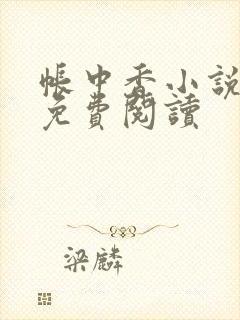 帳中香小說
免費閱讀
梁麟